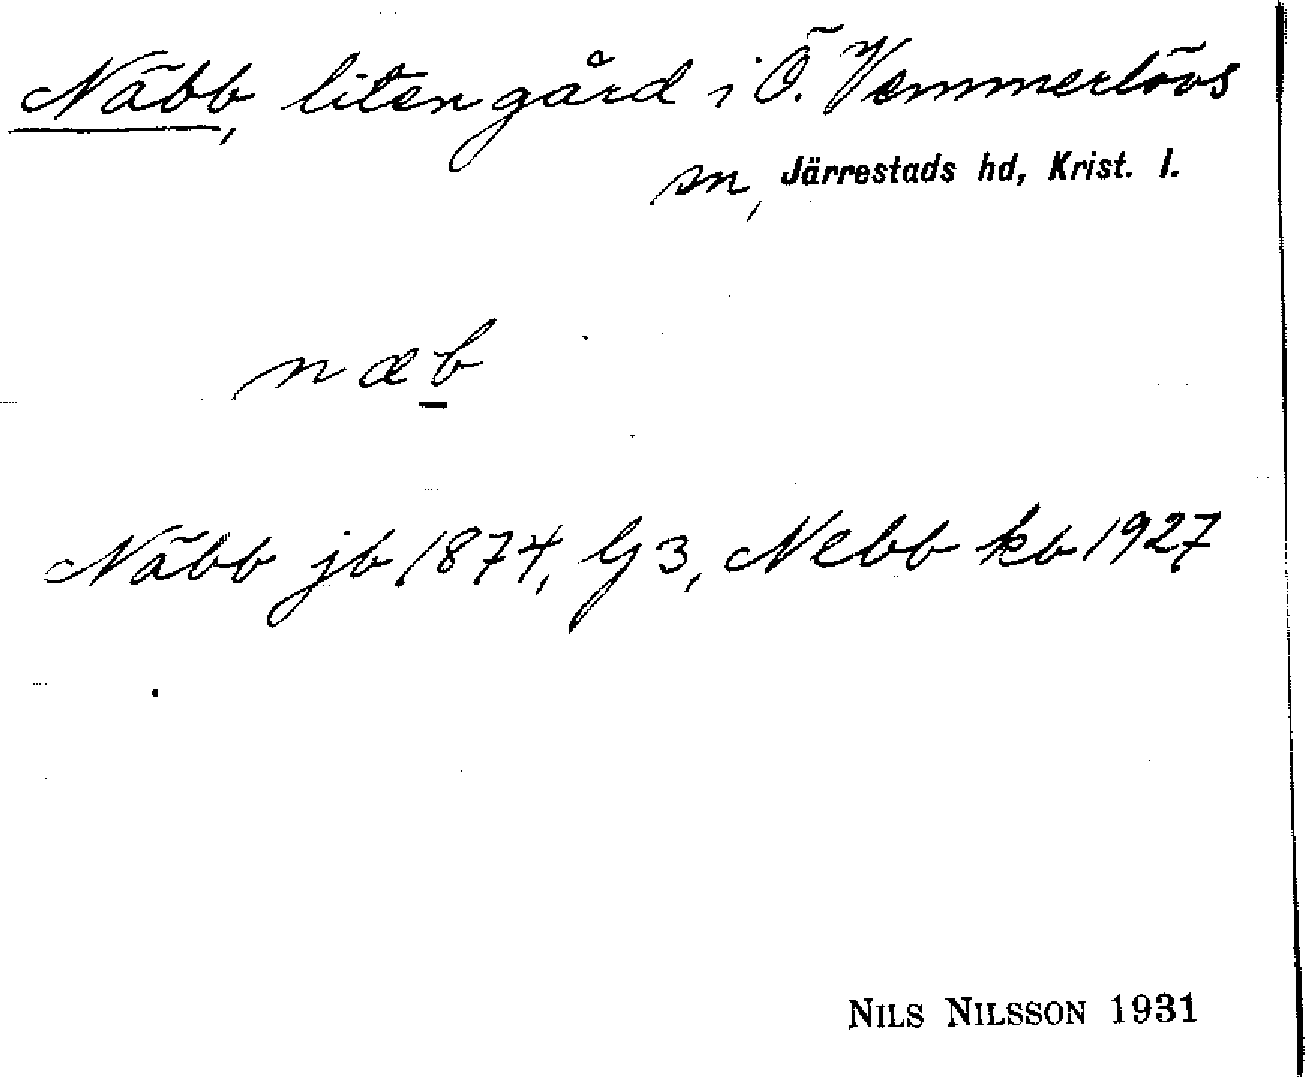 Näbb, liten gård i Ö. Vemmerlövs
sn, Järrestads hd, Krist. l.
næb
Näbb jb 1874, G 3, Nebb kb 1927
NILS NILSSON 1931